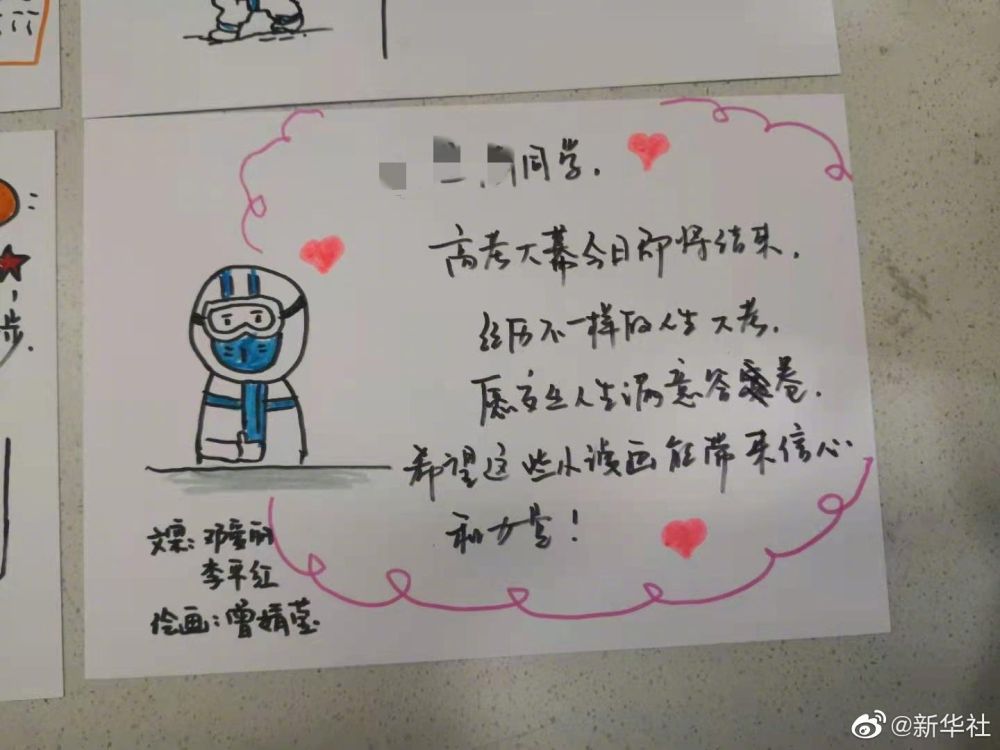 同学，
高考大幕今日即将结束，
经历不一样的人生大考，
愿交上人生满意答卷，
希望这些小漫画能带来信心
和力量！
文案：邓爱丽
李平红
绘画：曾婧莹
步，
@新华社